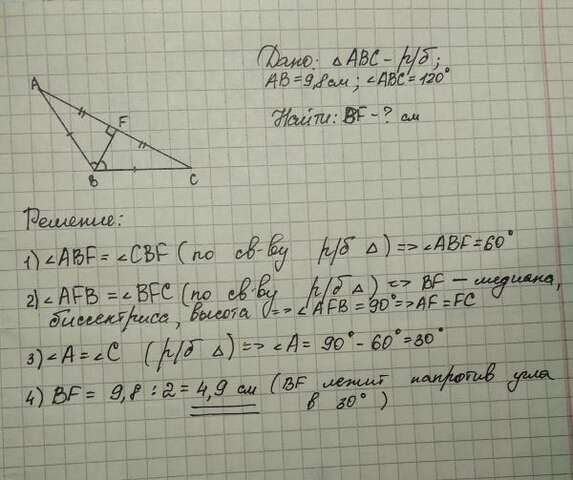 Дано: △ABC - р/б;
AB = 9,8 см; ∠ABC = 120°
Найти: BF - ? см
A
F
B
C
Решение:
1) ∠ABF = ∠CBF (по св-ву р/б △) => ∠ABF = 60°
2) ∠AFB = ∠BFC (по св-ву р/б △) => BF - медиана,
биссектриса, высота => ∠AFB = 90° => AF = FC
3) ∠A = ∠C (р/б △) => ∠A = 90° - 60° = 30°
4) BF = 9,8 : 2 = 4,9 см (BF лежит напротив угла
в 30°)